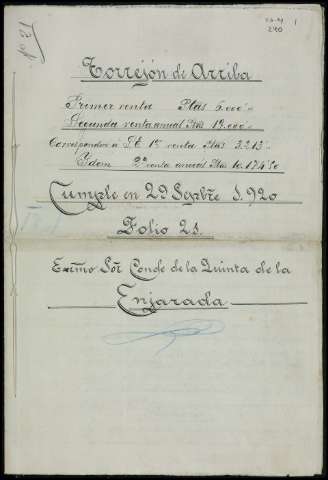 Nº 21
1
240
Torrejón de Arriba
Primer renta Ptas 6.000'"
Segunda renta anual Ptas 19.000'"
Corresponde a 1ª renta Ptas 3.213'
Idem 2ª renta anual Ptas 10.174'50
Cumple en 29 Sepbre 1.920
Folio 21.
Excmo Sör Conde de la Quinta de la
Enjarada